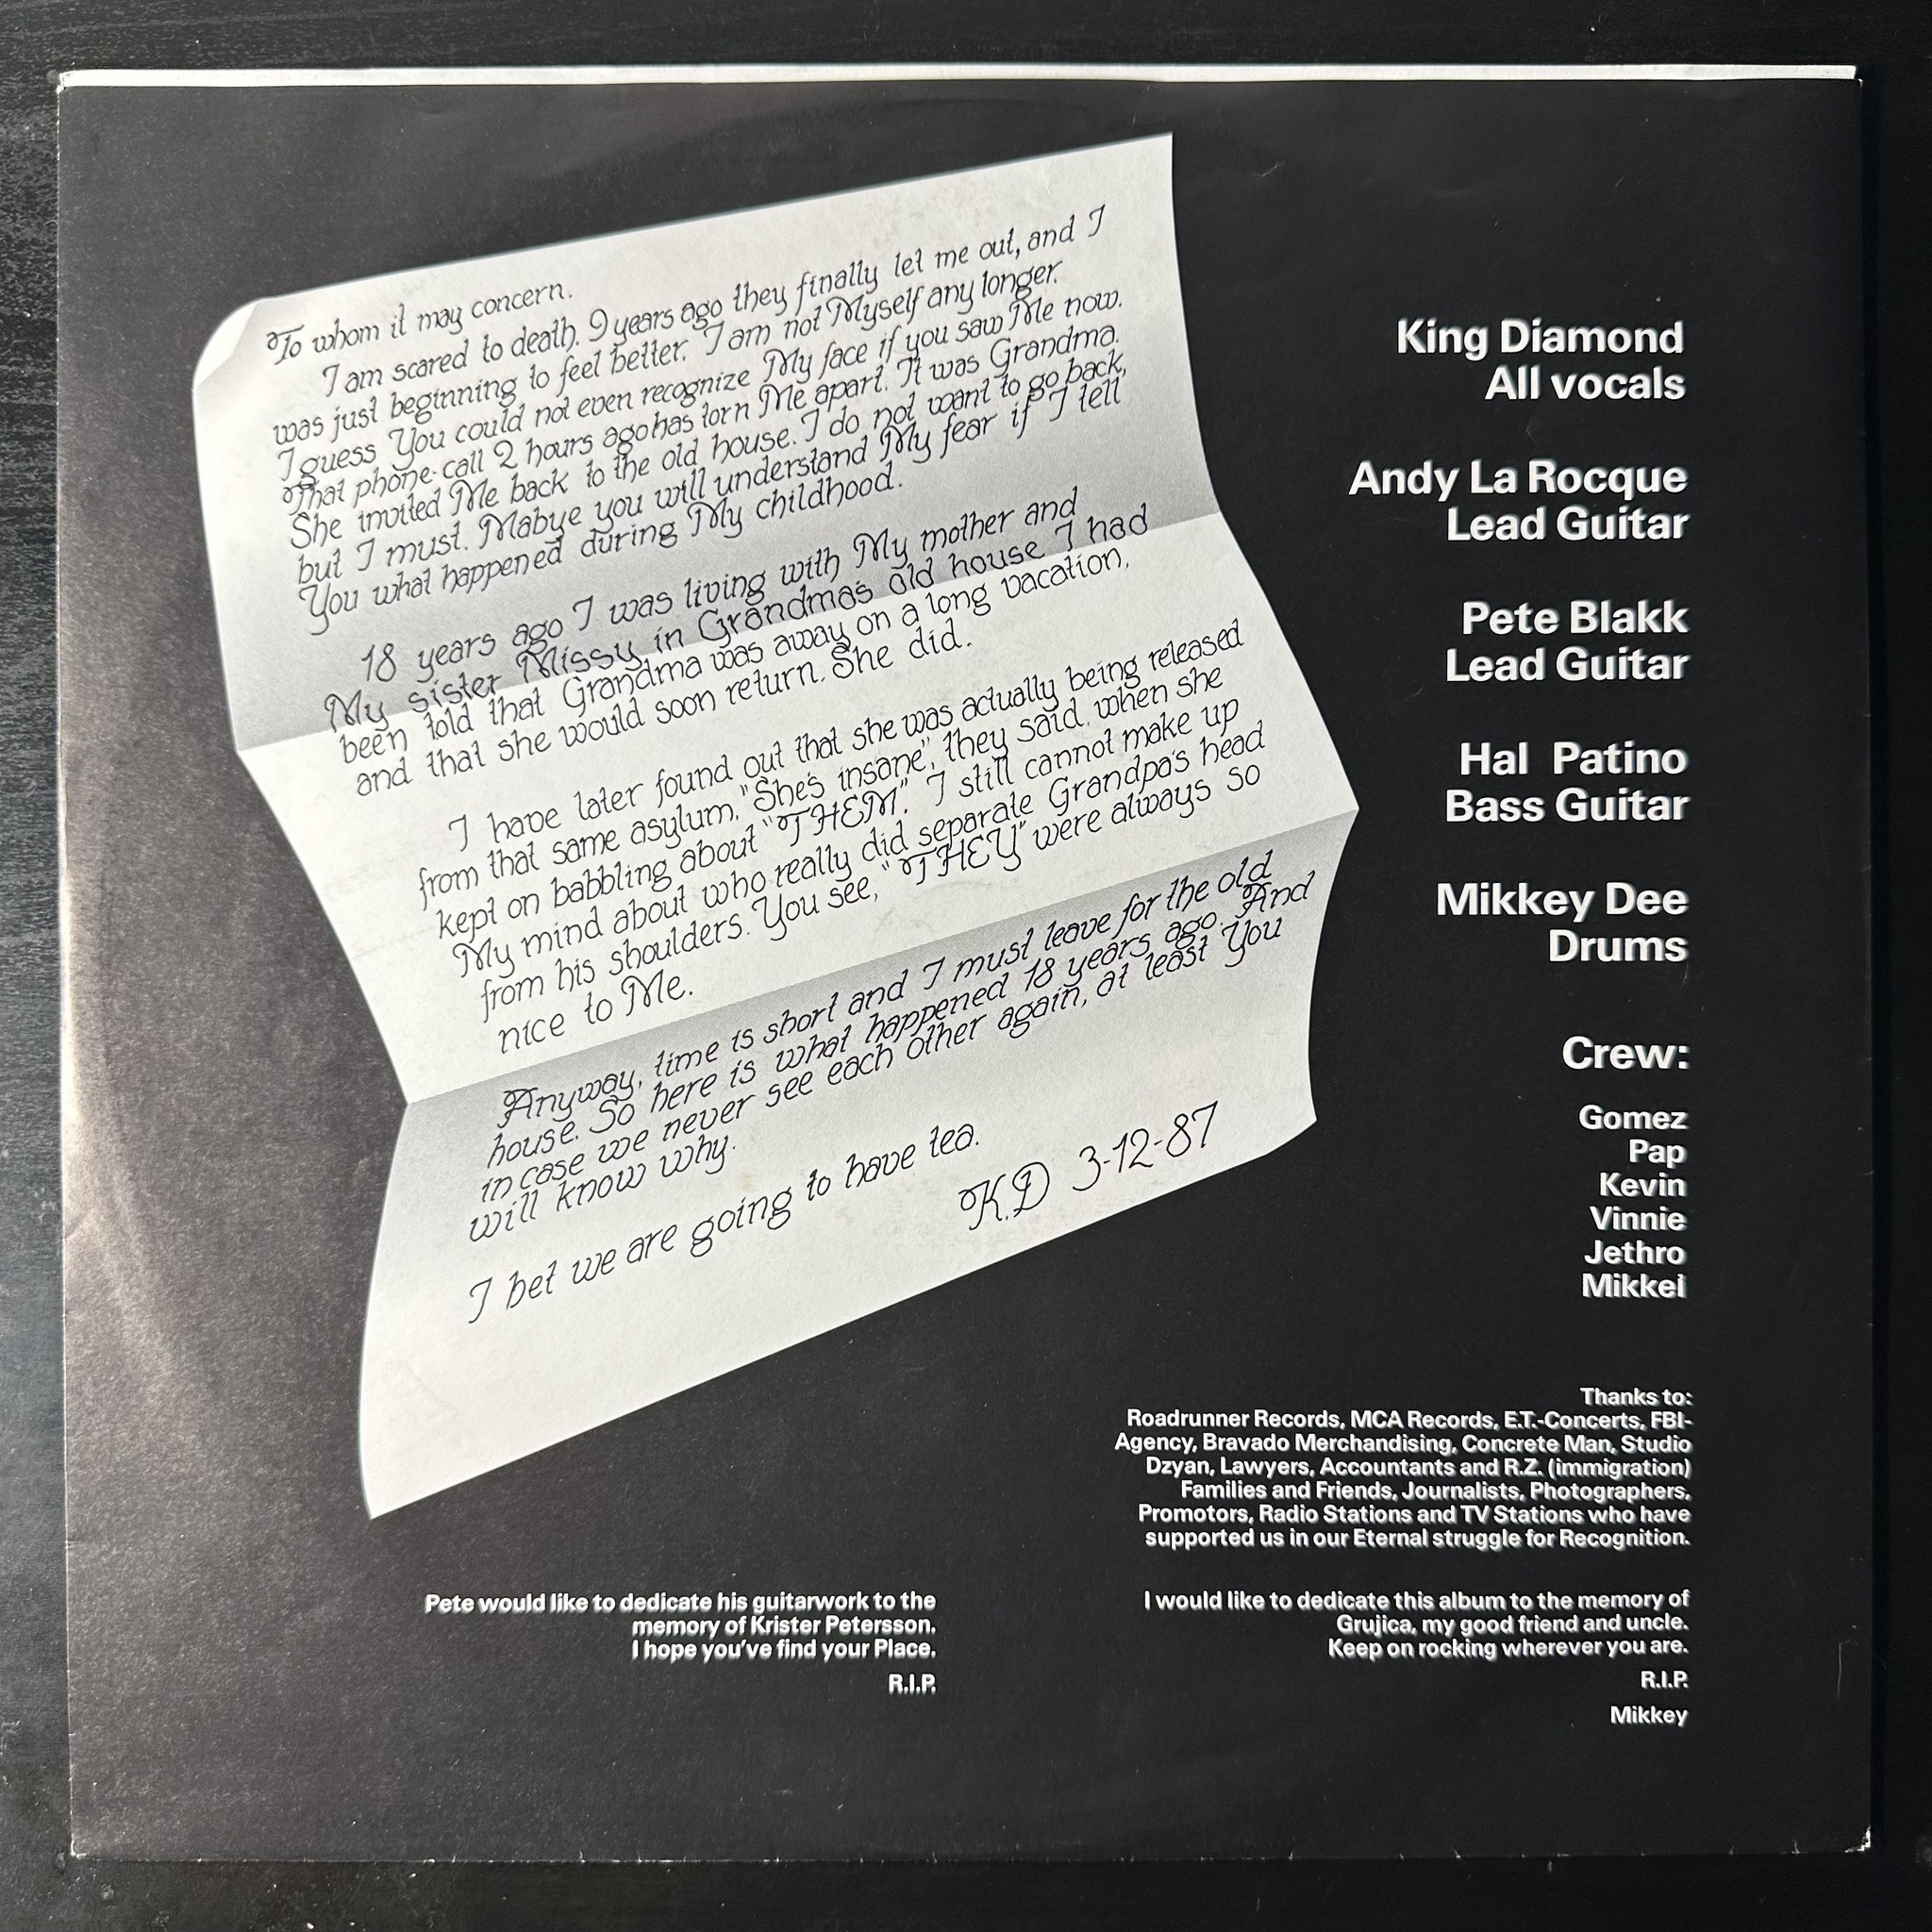 To whom it may concern.
I am scared to death. 9 years ago they finally let me out, and I
was just beginning to feel better. I am not Myself any longer.
I guess You could not even recognize My face if you saw Me now.
That phone-call 2 hours ago has torn Me apart. It was Grandma.
She invited Me back to the old house. I do not want to go back,
but I must. Mabye you will understand My fear if I tell
You what happened during My childhood.
18 years ago I was living with My mother and
My sister Missy in Grandma's old house. I had
been told that Grandma was away on a long vacation,
and that she would soon return. She did.
I have later found out that she was actually being released
from that same asylum. "She's insane", they said, when she
kept on babbling about "THEM". I still cannot make up
My mind about who really did separate Grandpa's head
from his shoulders. You see, "THEY" were always so
nice to Me.
Anyway, time is short and I must leave for the old
house. So here is what happened 18 years ago. And
in case we never see each other again, at least You
will know why.
I bet we are going to have tea.
K.D 3-12-87
King Diamond
All vocals
Andy La Rocque
Lead Guitar
Pete Blakk
Lead Guitar
Hal Patino
Bass Guitar
Mikkey Dee
Drums
Crew:
Gomez
Pap
Kevin
Vinnie
Jethro
Mikkel
Thanks to:
Roadrunner Records, MCA Records, E.T.-Concerts, FBI-
Agency, Bravado Merchandising, Concrete Man, Studio
Dzyan, Lawyers, Accountants and R.Z. (immigration)
Families and Friends, Journalists, Photographers,
Promotors, Radio Stations and TV Stations who have
supported us in our Eternal struggle for Recognition.
Pete would like to dedicate his guitarwork to the
memory of Krister Petersson.
I hope you've find your Place.
R.I.P.
I would like to dedicate this album to the memory of
Grujica, my good friend and uncle.
Keep on rocking wherever you are.
R.I.P.
Mikkey